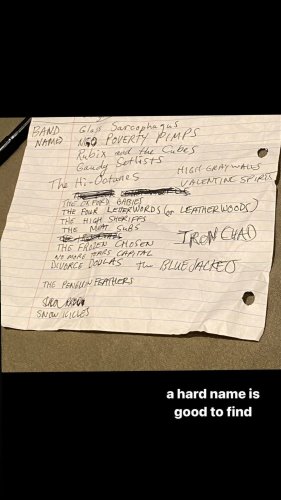 BAND NAMES
Glass Sarcophagus
NEO POVERTY PIMPS
Rubix and the Cubes
Gaudy Setlists
The Hi-Dotunes
HIGH GRAYWALLS
VALENTINE SPIRES
THE OXFORD BABIES
THE FOUR LETTERWORDS (or LEATHERWOODS)
THE HIGH SHERIFFS
THE MEAT SUBS
THE FROZEN CHOSEN
IRON CHAD
NO MORE TEARS CAPITAL
DIVORCE DOULAS
the BLUE JACKETS
THE PENGUIN FEATHERS
SNOWICICLES
a hard name is
good to find